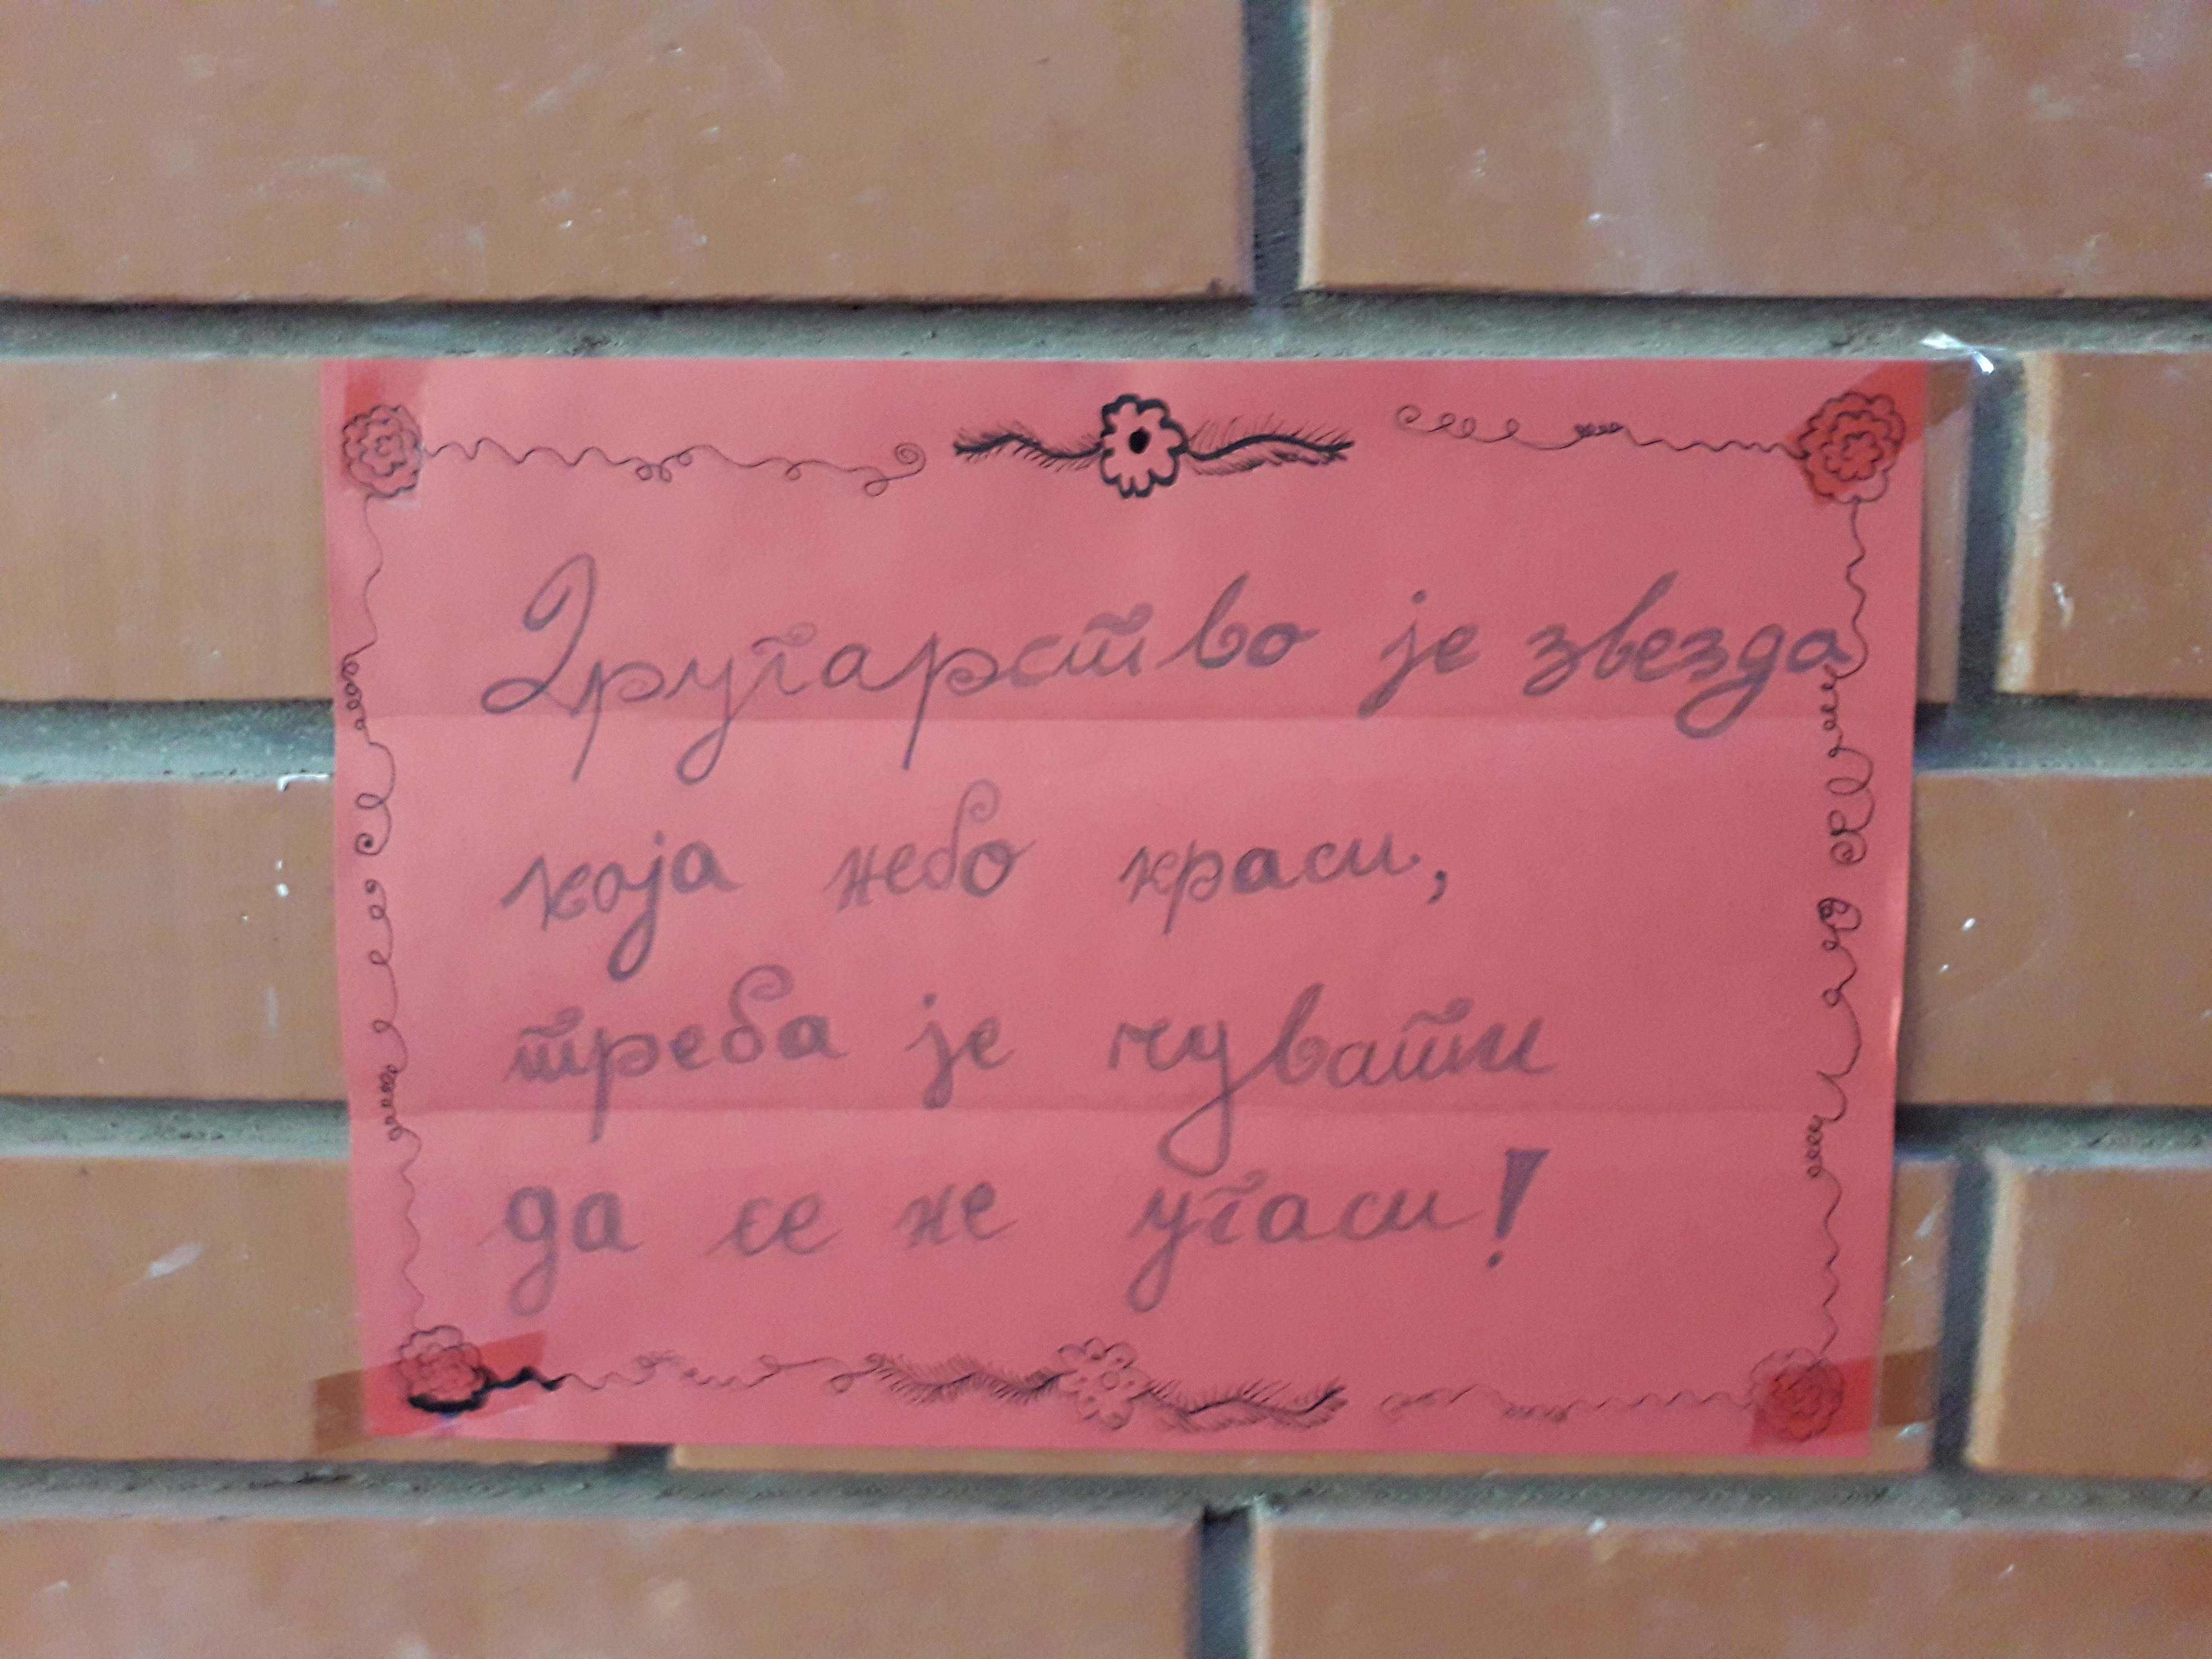 Другарство је звезда
која небо краси,
треба је чувати
да се не угаси!